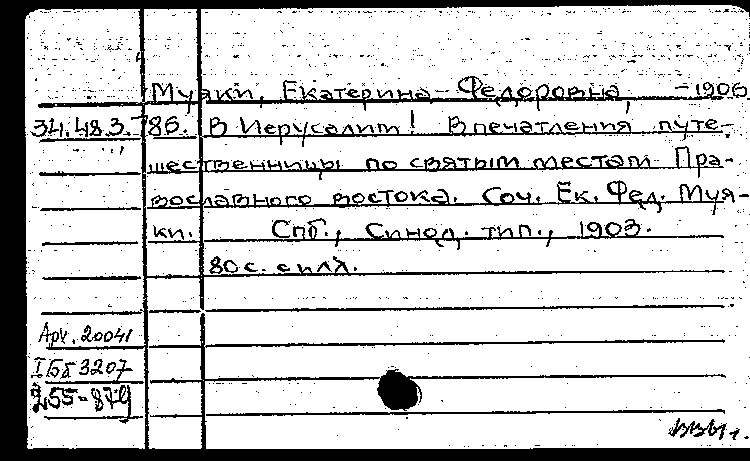 Муяки, Екатерина Федоровна, -1906
34.48.3.786. В Иерусалим! Впечатления путе-
шественницы по святым местам Пра-
вославного востока. Соч. Ек. Фед. Муя-
ки. Спб., Синод. тип., 1903.
80 с. с илл.
Арх. 20041
IБб 3207
255-879